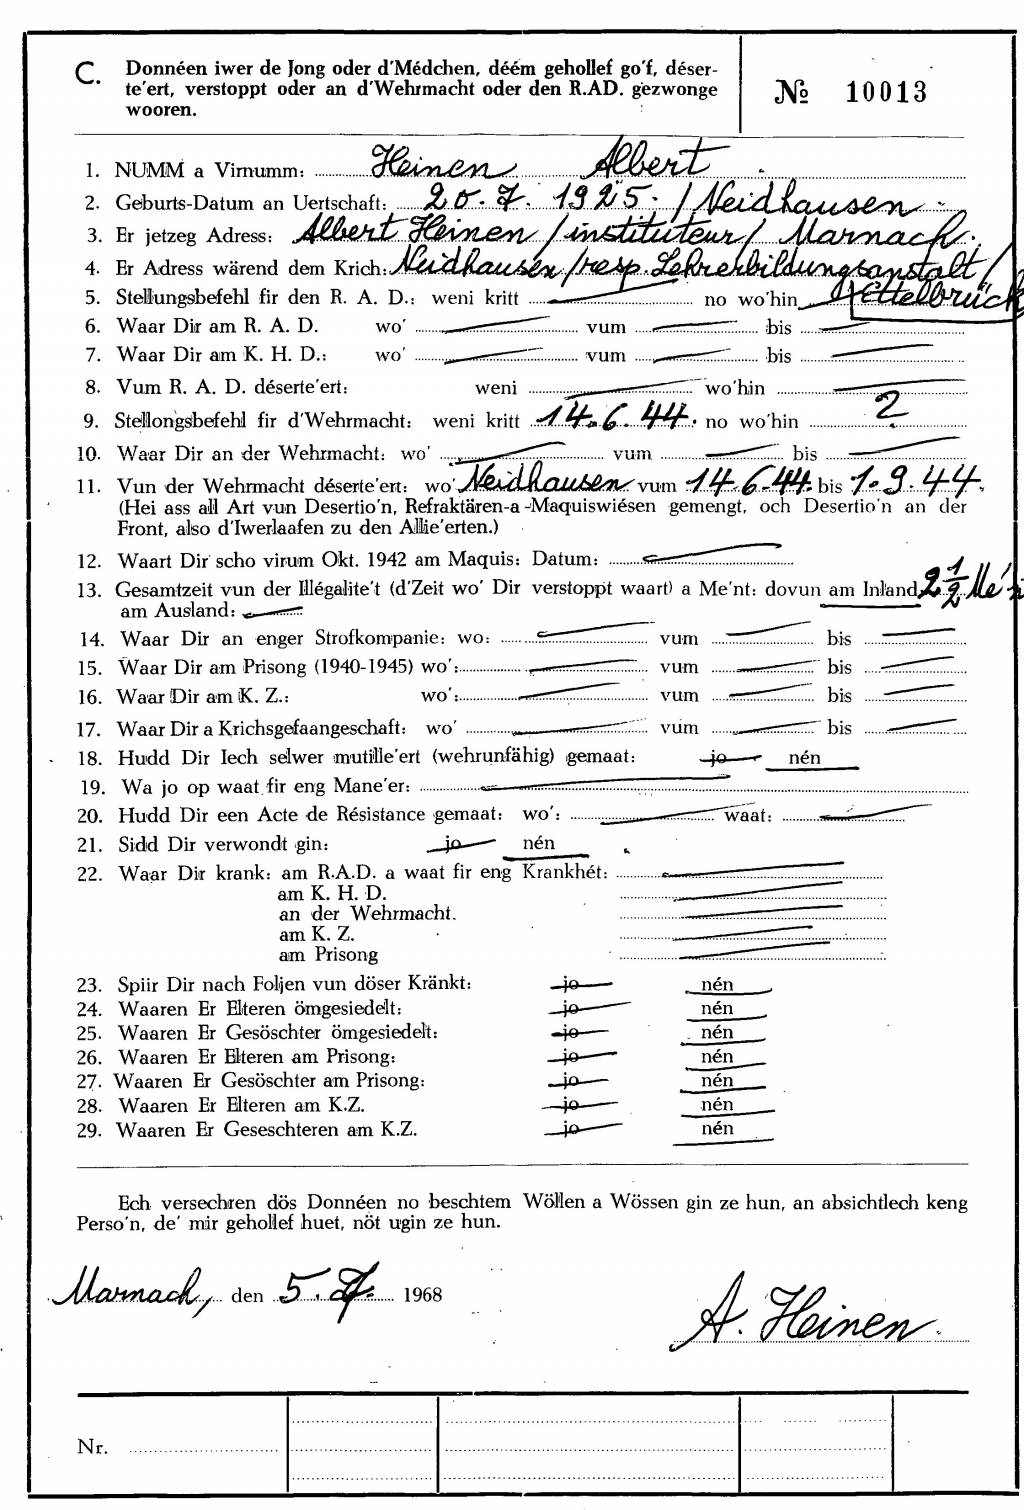 C. Donnéen iwer de Jong oder d'Médchen, déém gehollef go'f, déser-
te'ert, verstoppt oder an d'Wehrmacht oder den R.AD. gezwonge
wooren.
№ 10013
1. NUMM a Virnumm: Heinen Albert
2. Geburts-Datum an Uertschaft: 20. 7. 1925. / Neidhausen
3. Er jetzeg Adress: Albert Heinen / instituteur / Marnach.
4. Er Adress wärend dem Krich: Neidhausen / resp. Lehrerbildungsanstalt /
Ettelbrück
5. Stellungsbefehl fir den R. A. D.: weni kritt no wo'hin
6. Waar Dir am R. A. D. wo' vum bis
7. Waar Dir am K. H. D.: wo' vum bis
8. Vum R. A. D. déserte'ert: weni wo'hin
9. Stellongsbefehl fir d'Wehrmacht: weni kritt 14. 6. 44. no wo'hin ?
10. Waar Dir an der Wehrmacht: wo' vum bis
11. Vun der Wehrmacht déserte'ert: wo' Neidhausen vum 14. 6. 44. bis 1. 9. 44.
(Hei ass all Art vun Desertio'n, Refraktären-a-Maquiswiésen gemengt, och Desertio'n an der
Front, also d'Iwerlaafen zu den Allie'erten.)
12. Waart Dir scho virum Okt. 1942 am Maquis: Datum:
13. Gesamtzeit vun der Illégalite't (d'Zeit wo' Dir verstoppt waart) a Me'nt: dovun am Inland 2 1/2 Me'n
am Ausland:
14. Waar Dir an enger Strofkompanie: wo: vum bis
15. Waar Dir am Prisong (1940-1945) wo': vum bis
16. Waar Dir am K. Z.: wo': vum bis
17. Waar Dir a Krichsgefaangeschaft: wo' vum bis
18. Hudd Dir Iech selwer mutille'ert (wehrunfähig) gemaat: jo nén
19. Wa jo op waat fir eng Mane'er:
20. Hudd Dir een Acte de Résistance gemaat: wo': waat:
21. Sidd Dir verwondt gin: jo nén
22. Waar Dir krank: am R.A.D. a waat fir eng Krankhét:
am K. H. D.
an der Wehrmacht.
am K. Z.
am Prisong
23. Spiir Dir nach Foljen vun döser Kränkt: jo nén
24. Waaren Er Elteren ömgesiedelt: jo nén
25. Waaren Er Gesöschter ömgesiedelt: jo nén
26. Waaren Er Elteren am Prisong: jo nén
27. Waaren Er Gesöschter am Prisong: jo nén
28. Waaren Er Elteren am K.Z. jo nén
29. Waaren Er Geseschteren am K.Z. jo nén
Ech versechren dös Donnéen no beschtem Wöllen a Wössen gin ze hun, an absichtlech keng
Perso'n, de' mir gehollef huet, nöt ugin ze hun.
Marnach, den 5. 7. 1968
A. Heinen.
Nr.